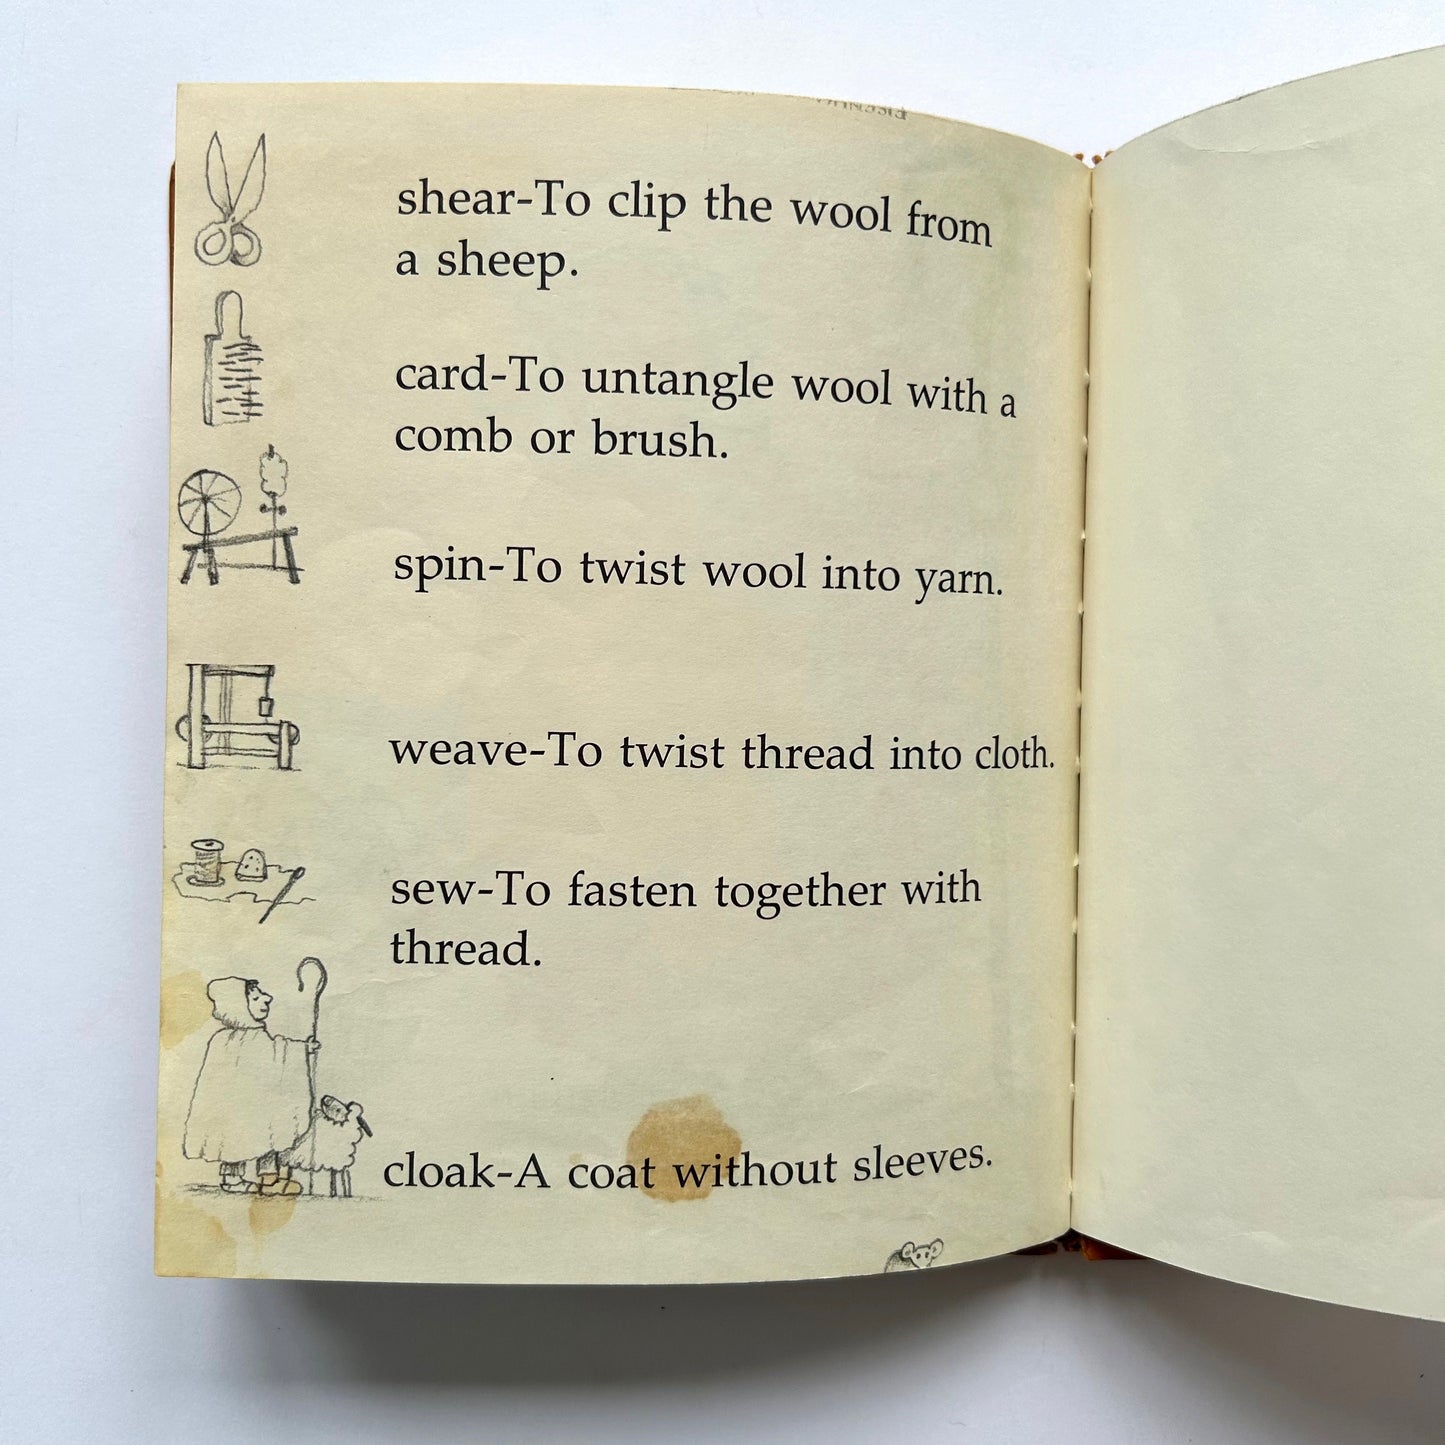 shear-To clip the wool from
a sheep.
card-To untangle wool with a
comb or brush.
spin-To twist wool into yarn.
weave-To twist thread into cloth.
sew-To fasten together with
thread.
cloak-A coat without sleeves.